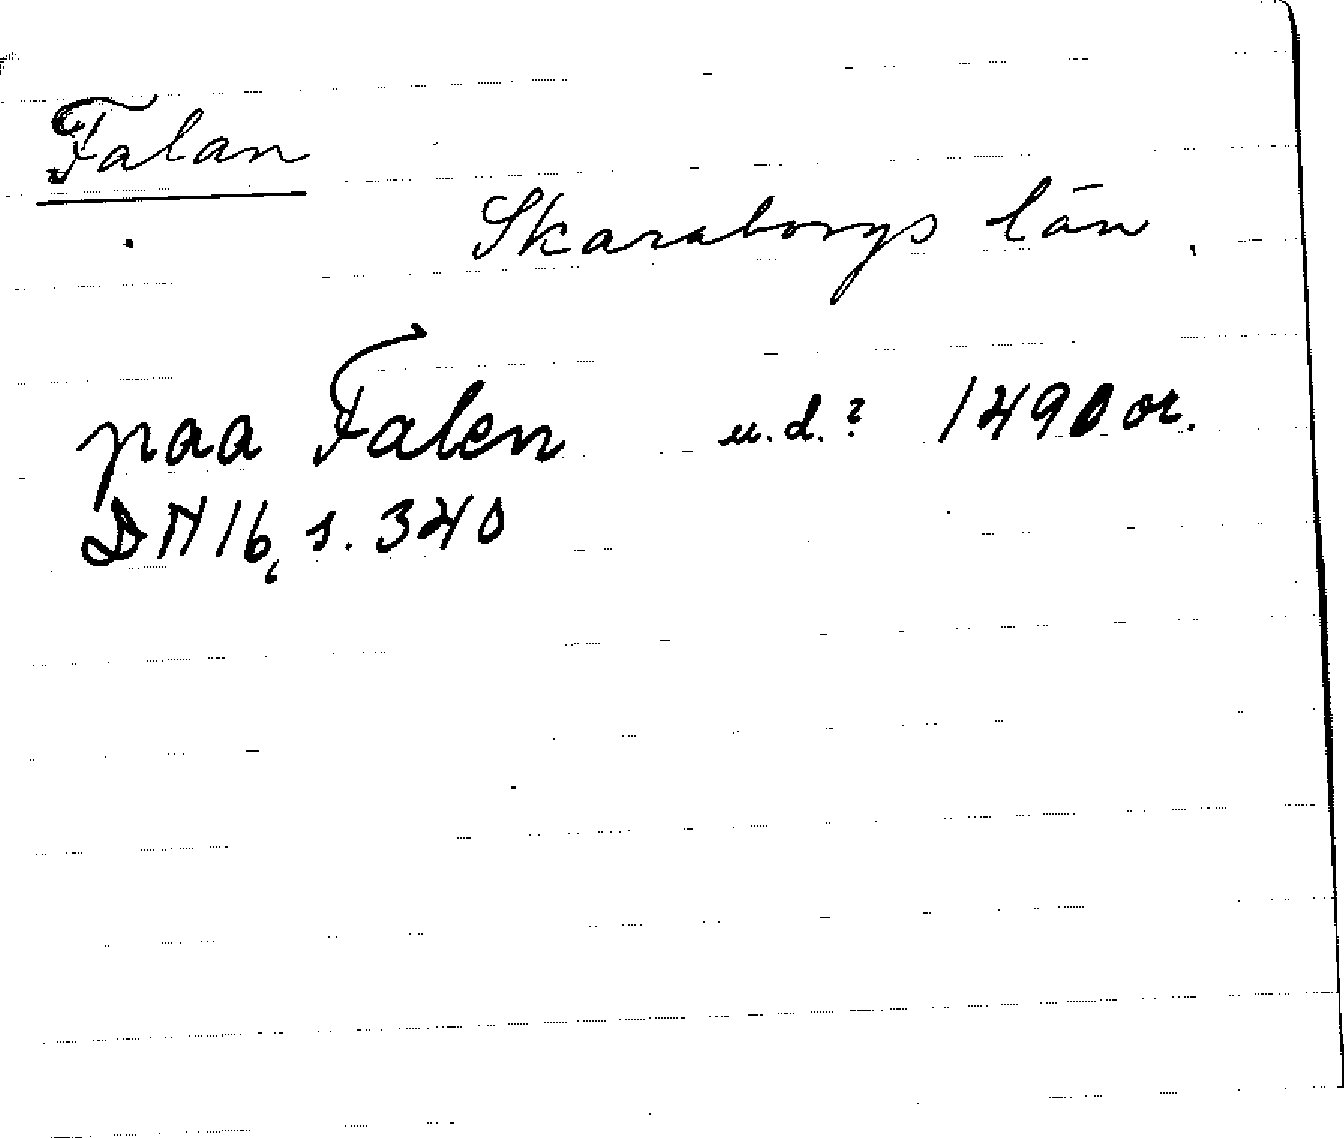 Falan
Skaraborgs län
paa Falen u.d.? 1490 or.
DN 16, s. 340